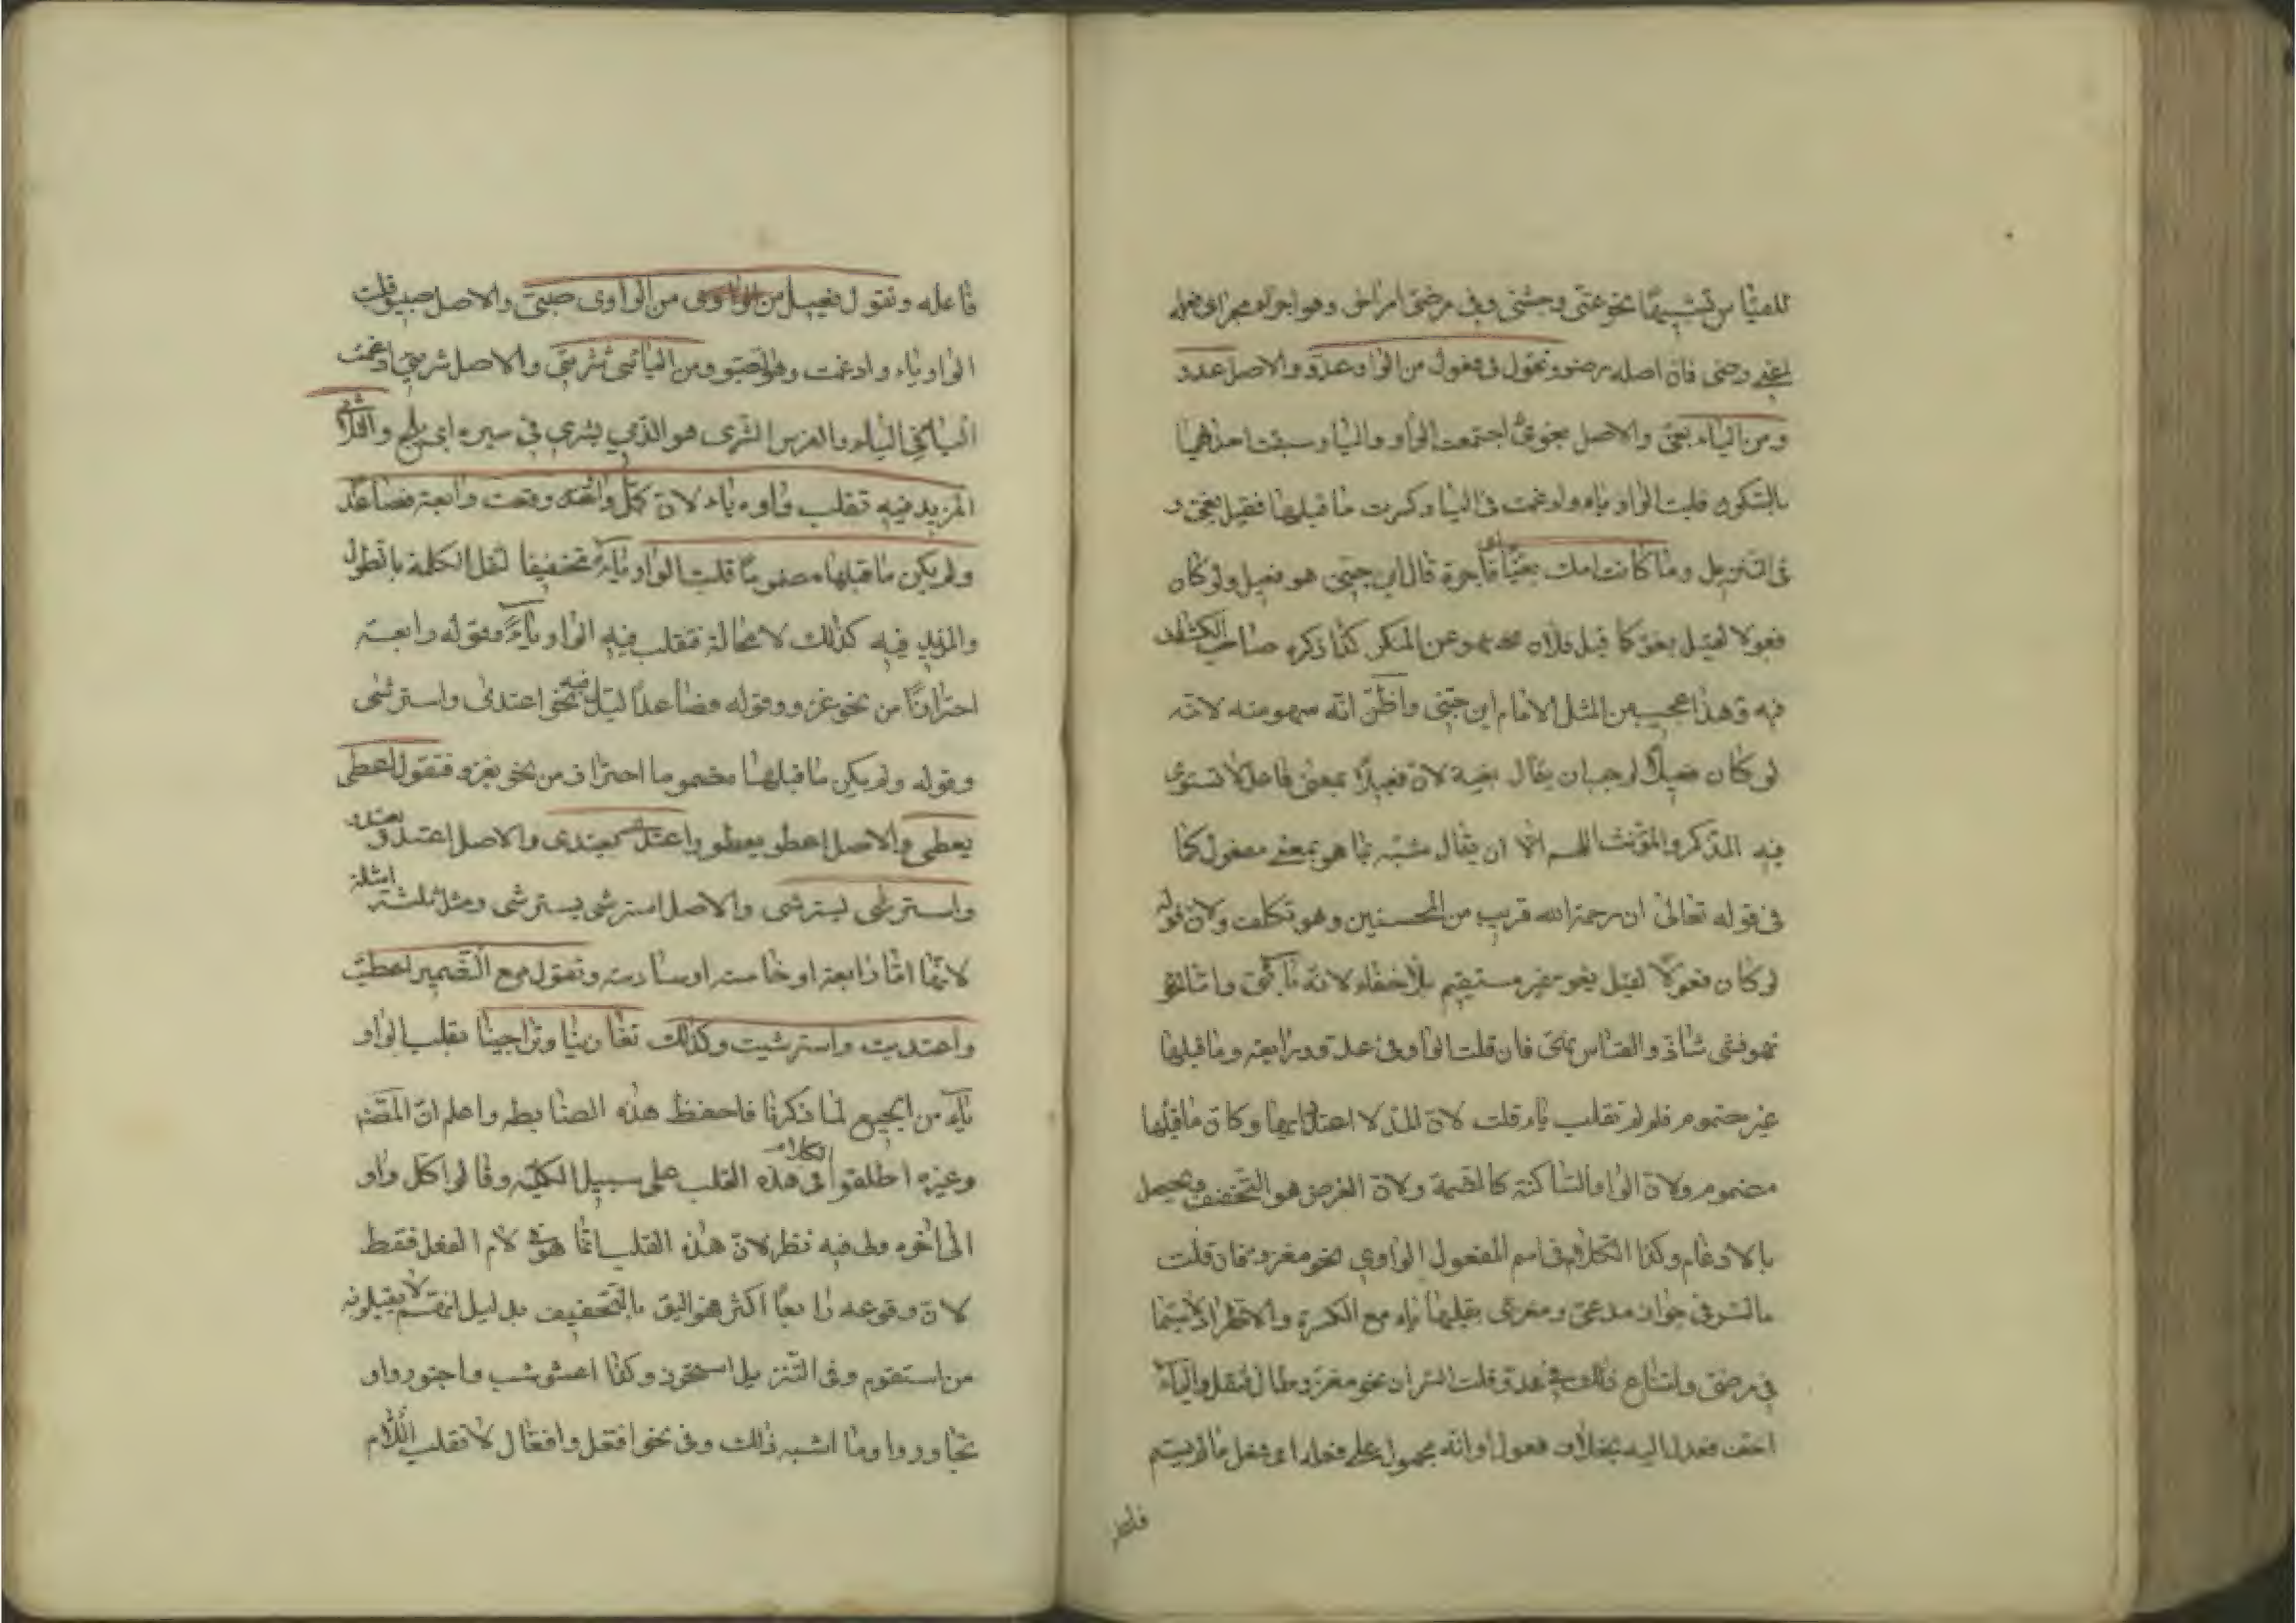 للقياس تشبيها نحو عتى وجثى وفي مرضى امر اخر وهو اجراؤه مجرى فعله
اعنى رضى فان اصله رضو وتقول فى فعول من الواو عدوّ والاصل عدوو
ومن الياء بغىّ والاصل بغوى اجتمعت الواو والياء وسبقت احداهما
بالسكون قلبت الواو ياء وادغمت فى الياء وكسرت ما قبلها فقيل بغى و
فى التنزيل وما كانت امك بغيّا اى فاجرة قال ابن جنى هو فعيل ولو كان
فعولا لقيل بغوّ كما قيل فلان نهو عن المنكر كذا ذكره صاحب الكشاف
فيه وهذا عجيب من المثل الامام ابن جنى واظنّ انّه سهو منه لانّه
لو كان فعيلا لوجب ان يقال بغية لانّ فعيلا بمعنى فاعل لا تستوى
فيه المذكر والمؤنث اللهم الّا ان يقال شبّه بما هو بمعنى مفعول كما
فى قوله تعالى ان رحمة الله قريب من المحسنين وهو تكلف ولانّ قوله
لو كان فعولا لقيل بغو غير مستقيم بلا خفاء لانّه يائى واما قولهم
نهو فشاذ والقياس نهى فان قلت الواو فى عدوّ رابعة وما قبلها
غير مضموم فلم لم تقلب ياء قلت لانّ المدّ لا اعتداد بها وكان ما قبلها
مضموم ولانّ الواو الساكنة كالضمة ولانّ الغرض هو التخفيف ويحصل
بالادغام وكذا الكلام فى اسم المفعول الواوي نحو مغزوّ فان قلت
ما السر فى جواز مدعىّ ومغزىّ بقلبها ياء مع الكسرة والاطراد لا سيما
فى مرضى وامتناع ذلك فى عدوّ قلت السر ان نحو مغزوّ طال فثقل والياء
اخف فعدل اليه بخلاف فعول او انّه محمول على فعله اى فعل ما لم يسم
فاعله
فاعله وتقول فى فعيل من الواوى صبىّ والاصل صبيو قلبت
الواو ياء وادغمت وهو من الصبو ومن اليائى شرىّ والاصل شريى ادغمت
الياء فى الياء والفرس الشرى هو الذي يشرى فى سيره اى يلج والثلاثى
المزيد فيه تقلب واوه ياء لانّ كلّ واو وقعت رابعة فصاعدا
ولم يكن ما قبلها مضموما قلبت الواو ياء تخفيفا لثقل الكلمة بالطول
والمزيد فيه كذلك لا محالة فتقلب فيه الواو ياء فقوله رابعة
احترازا من نحو غزو وقوله فصاعدا ليدخل فيه نحو اعتدى واسترشى
وقوله ولم يكن ما قبلها مضموما احتراز من نحو يغزو فتقول اعطى
يعطى والاصل اعطو يعطو واعتدى يعتدى والاصل اعتدو يعتدو
واسترشى يسترشى والاصل استرشو يسترشو ومثل بثلثة امثلة
لانّها امّا رابعة او خامسة او سادسة وتقول مع الضمير اعطيت
واعتديت واسترشيت وكذلك تغازينا وتراجينا بقلب الواو
ياء من الجميع لما ذكرنا فاحفظ هذه الضابطة واعلم انّ المصنف
وغيره اطلقوا الكلام فى هذه القلب على سبيل الكلّية وقالوا كل واو
الى آخره ولى فيه نظر لانّ هذا القلب انّما هو فى لام الفعل فقط
لانّ وقوعه رابعا اكثر فهو اليق بالتخفيف بدليل انهم لا يقلبونه
من استقوم وفى التنزيل استحوذ وكذا اعشوشب واجتوروا و
تجاوروا وما اشبه ذلك وفى نحو افعلّ وافعالّ لا تقلب اللام